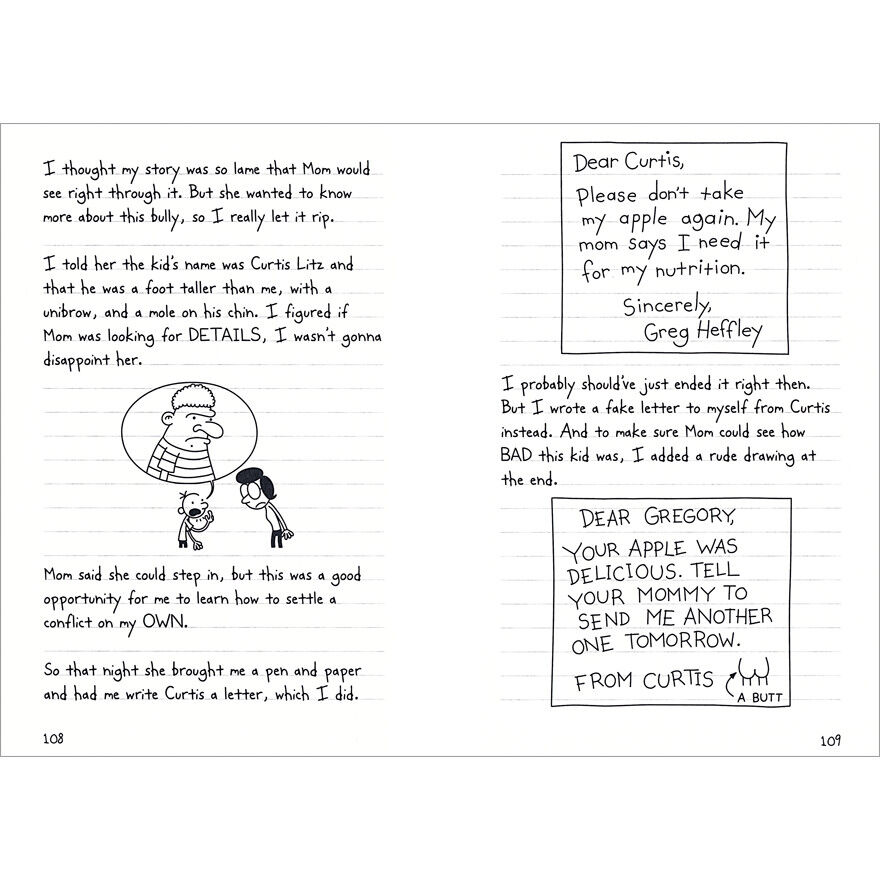 I thought my story was so lame that Mom would
see right through it. But she wanted to know
more about this bully, so I really let it rip.
I told her the kid's name was Curtis Litz and
that he was a foot taller than me, with a
unibrow, and a mole on his chin. I figured if
Mom was looking for DETAILS, I wasn't gonna
disappoint her.
Mom said she could step in, but this was a good
opportunity for me to learn how to settle a
conflict on my OWN.
So that night she brought me a pen and paper
and had me write Curtis a letter, which I did.
108
Dear Curtis,
Please don't take
my apple again. My
mom says I need it
for my nutrition.
Sincerely,
Greg Heffley
I probably should've just ended it right then.
But I wrote a fake letter to myself from Curtis
instead. And to make sure Mom could see how
BAD this kid was, I added a rude drawing at
the end.
DEAR GREGORY,
YOUR APPLE WAS
DELICIOUS. TELL
YOUR MOMMY TO
SEND ME ANOTHER
ONE TOMORROW.
FROM CURTIS
A BUTT
109